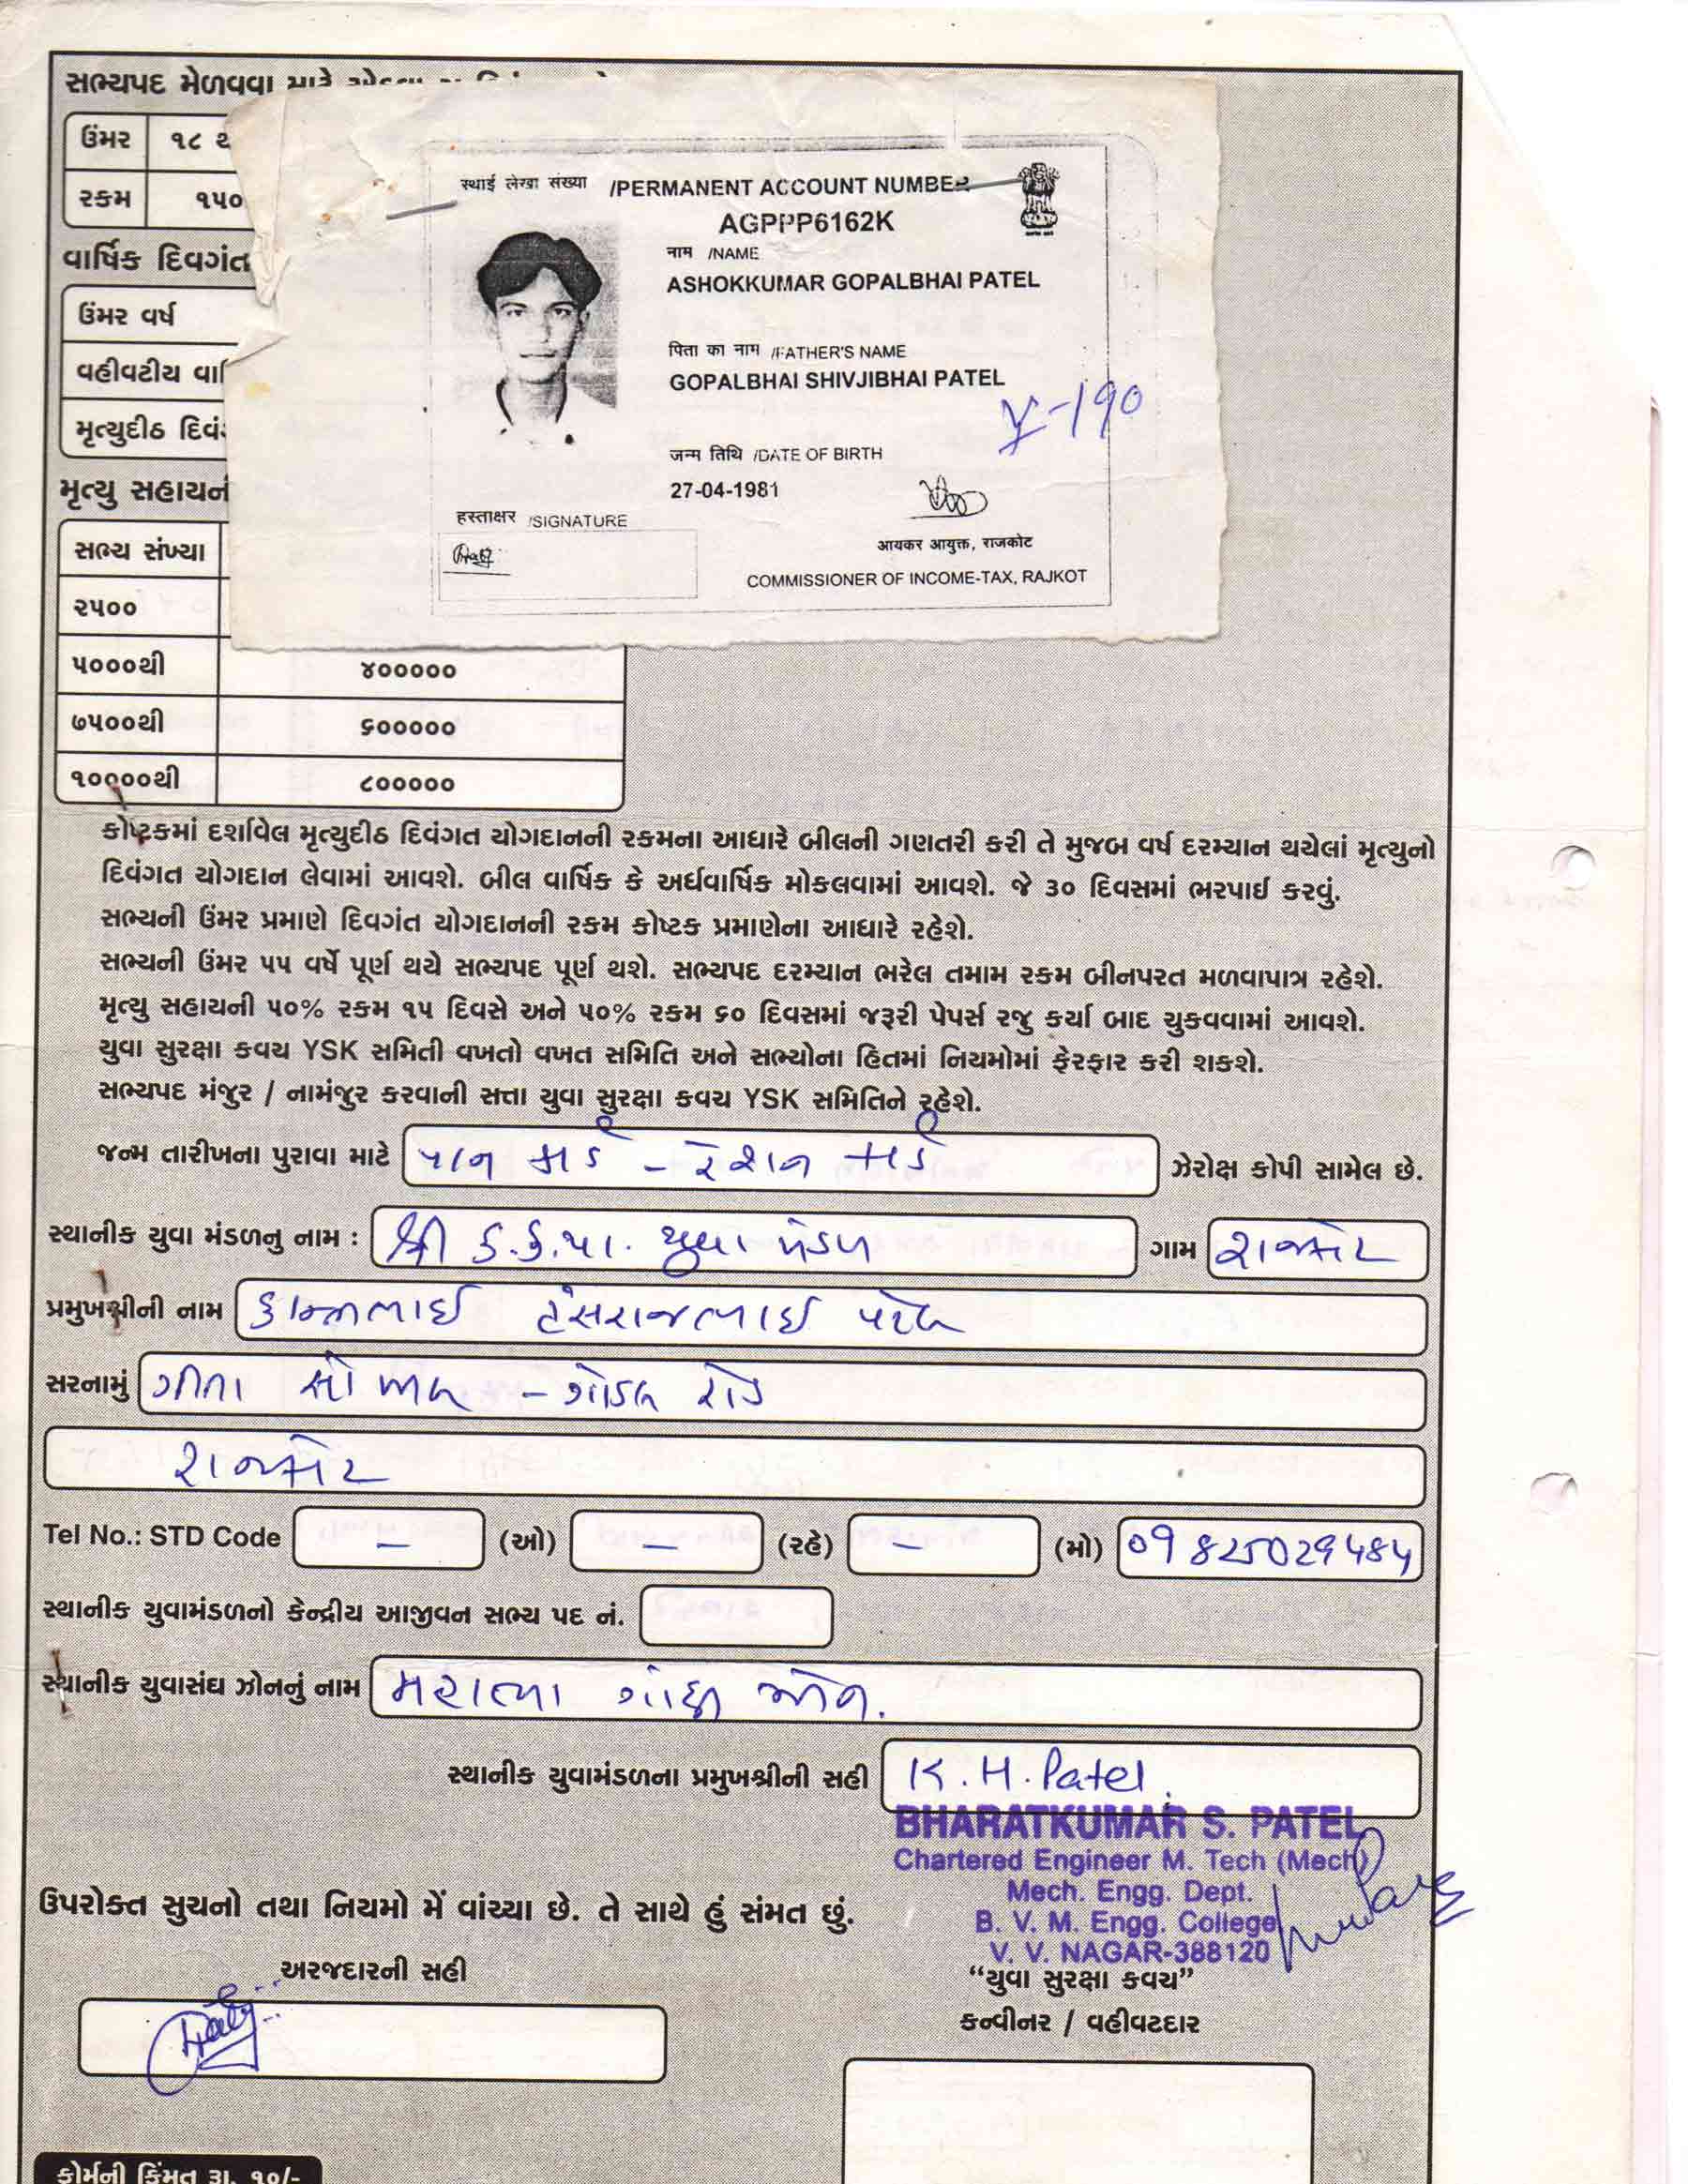 સભ્યપદ મેળવવા માટે
ઉંમર ૧૮
રકમ ૧૫૦
વાર્ષિક દિવગંત
ઉંમર વર્ષ
વહીવટીય
મૃત્યુદીઠ
મૃત્યુ સહાયની
સભ્ય સંખ્યા
૨૫૦૦
૫૦૦૦થી ૪૦૦૦૦૦
૭૫૦૦થી ૬૦૦૦૦૦
૧૦૦૦૦થી ૮૦૦૦૦૦
स्थाई लेखा संख्या /PERMANENT ACCOUNT NUMBER
AGPPP6162K
नाम /NAME
ASHOKKUMAR GOPALBHAI PATEL
पिता का नाम /FATHER'S NAME
GOPALBHAI SHIVJIBHAI PATEL
Y-190
जन्म तिथि /DATE OF BIRTH
27-04-1981
हस्ताक्षर /SIGNATURE
आयकर आयुक्त, राजकोट
COMMISSIONER OF INCOME-TAX, RAJKOT
કોષ્ટકમાં દર્શાવેલ મૃત્યુદીઠ દિવંગત યોગદાનની રકમના આધારે બીલની ગણતરી કરી તે મુજબ વર્ષ દરમ્યાન થયેલાં મૃત્યુનો
દિવંગત યોગદાન લેવામાં આવશે. બીલ વાર્ષિક કે અર્ધવાર્ષિક મોકલવામાં આવશે. જે ૩૦ દિવસમાં ભરપાઈ કરવું.
સભ્યની ઉંમર પ્રમાણે દિવગંત યોગદાનની રકમ કોષ્ટક પ્રમાણેના આધારે રહેશે.
સભ્યની ઉંમર ૫૫ વર્ષે પૂર્ણ થયે સભ્યપદ પૂર્ણ થશે. સભ્યપદ દરમ્યાન ભરેલ તમામ રકમ બીનપરત મળવાપાત્ર રહેશે.
મૃત્યુ સહાયની ૫૦% રકમ ૧૫ દિવસે અને ૫૦% રકમ ૬૦ દિવસમાં જરૂરી પેપર્સ રજુ કર્યા બાદ ચુકવવામાં આવશે.
યુવા સુરક્ષા કવચ YSK સમિતી વખતો વખત સમિતિ અને સભ્યોના હિતમાં નિયમોમાં ફેરફાર કરી શકશે.
સભ્યપદ મંજુર / નામંજુર કરવાની સત્તા યુવા સુરક્ષા કવચ YSK સમિતિને રહેશે.
જન્મ તારીખના પુરાવા માટે પાન કાર્ડ - રેશન કાર્ડ ઝેરોક્ષ કોપી સામેલ છે.
સ્થાનીક યુવા મંડળનુ નામ : શ્રી ક.ક.પા. યુવા મંડળ ગામ રાજકોટ
પ્રમુખશ્રીની નામ કાન્તીભાઈ હંસરાજભાઈ પટેલ
સરનામું ગીતા સો મીલ - ગોંડલ રોડ
રાજકોટ
Tel No.: STD Code – (ઓ) – (રહે) – (મો) 09825029484
સ્થાનીક યુવામંડળનો કેન્દ્રીય આજીવન સભ્ય પદ નં.
સ્થાનીક યુવાસંઘ ઝોનનું નામ મહાત્મા ગાંધી ઝોન.
સ્થાનીક યુવામંડળના પ્રમુખશ્રીની સહી K.H.Patel.
BHARATKUMAR S. PATEL
Chartered Engineer M. Tech (Mech)
Mech. Engg. Dept.
B. V. M. Engg. College
V. V. NAGAR-388120
ઉપરોક્ત સુચનો તથા નિયમો મેં વાંચ્યા છે. તે સાથે હું સંમત છું.
અરજદારની સહી
“યુવા સુરક્ષા કવચ”
કન્વીનર / વહીવટદાર
ફોર્મની કિંમત રૂા. ૧૦/-